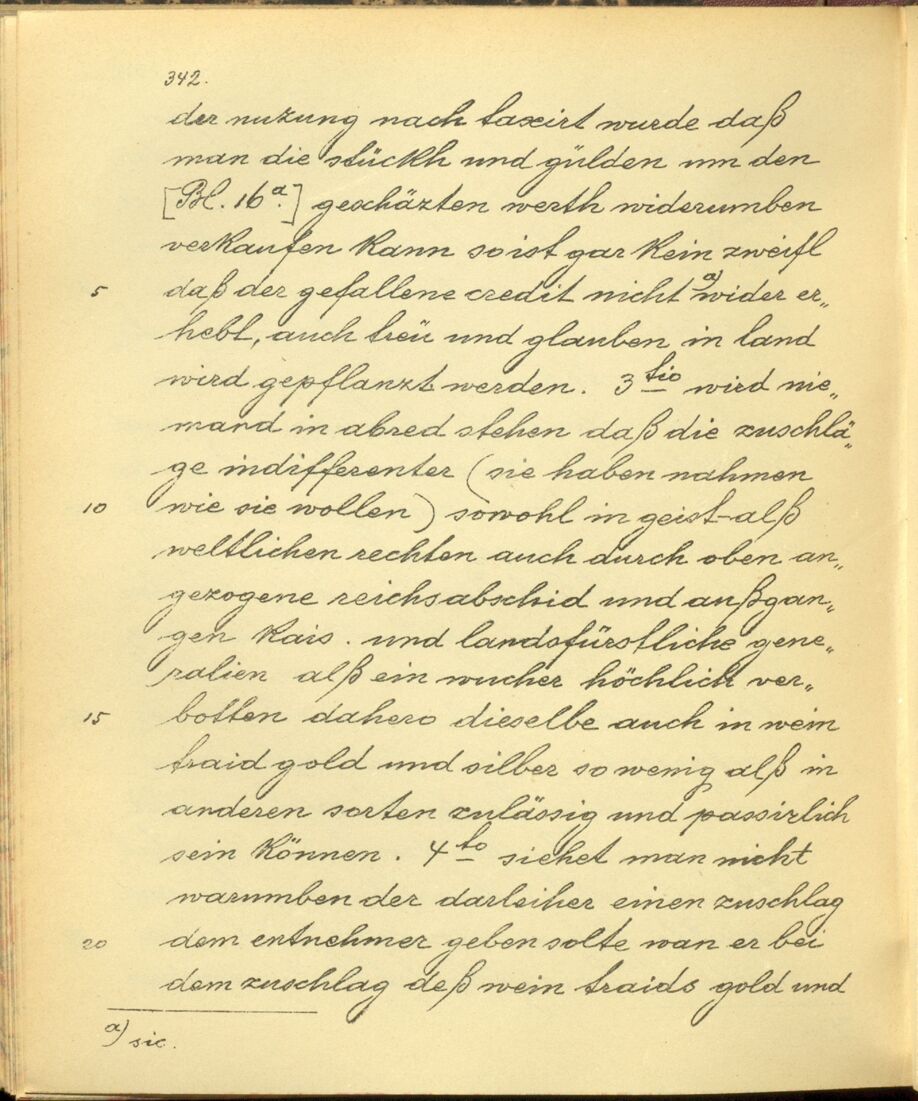 342.
der nutzung nach taxirt wurde daß
man die stückh und gülden um den
[Bl. 16a.] geschäzten werth widerumben
verkaufen kann so ist gar kein zweifl
5 daß der gefallene credit nicht a) wider er„
hebt, auch treü und glauben in land
wird gepflanzt werden. 3tio wird nie„
mand in abred stehen daß die zuschlä„
ge indifferenter (sie haben nahmen
10 wie sie wollen) sowohl in geist- alß
weltlichen rechten auch durch oben an„
gezogene reichsabschid und außgan„
gen kais. und landsfürstliche gene„
ralien alß ein wucher höchlich ver„
15 botten dahero dieselbe auch in wein
traid gold und silber so wenig alß in
anderen sorten zulässig und passirlich
sein können. 4to siehet man nicht
warumben der darleiher einen zuschlag
20 dem entnehmer geben solte wan er bei
dem zuschlag deß wein traids gold und
a) sic.